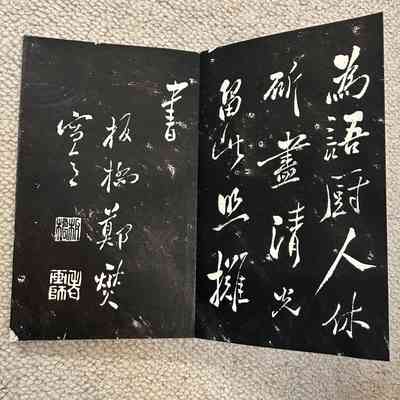 為語厨人休
斫盡清光
留此照攤
書
板橋鄭燮